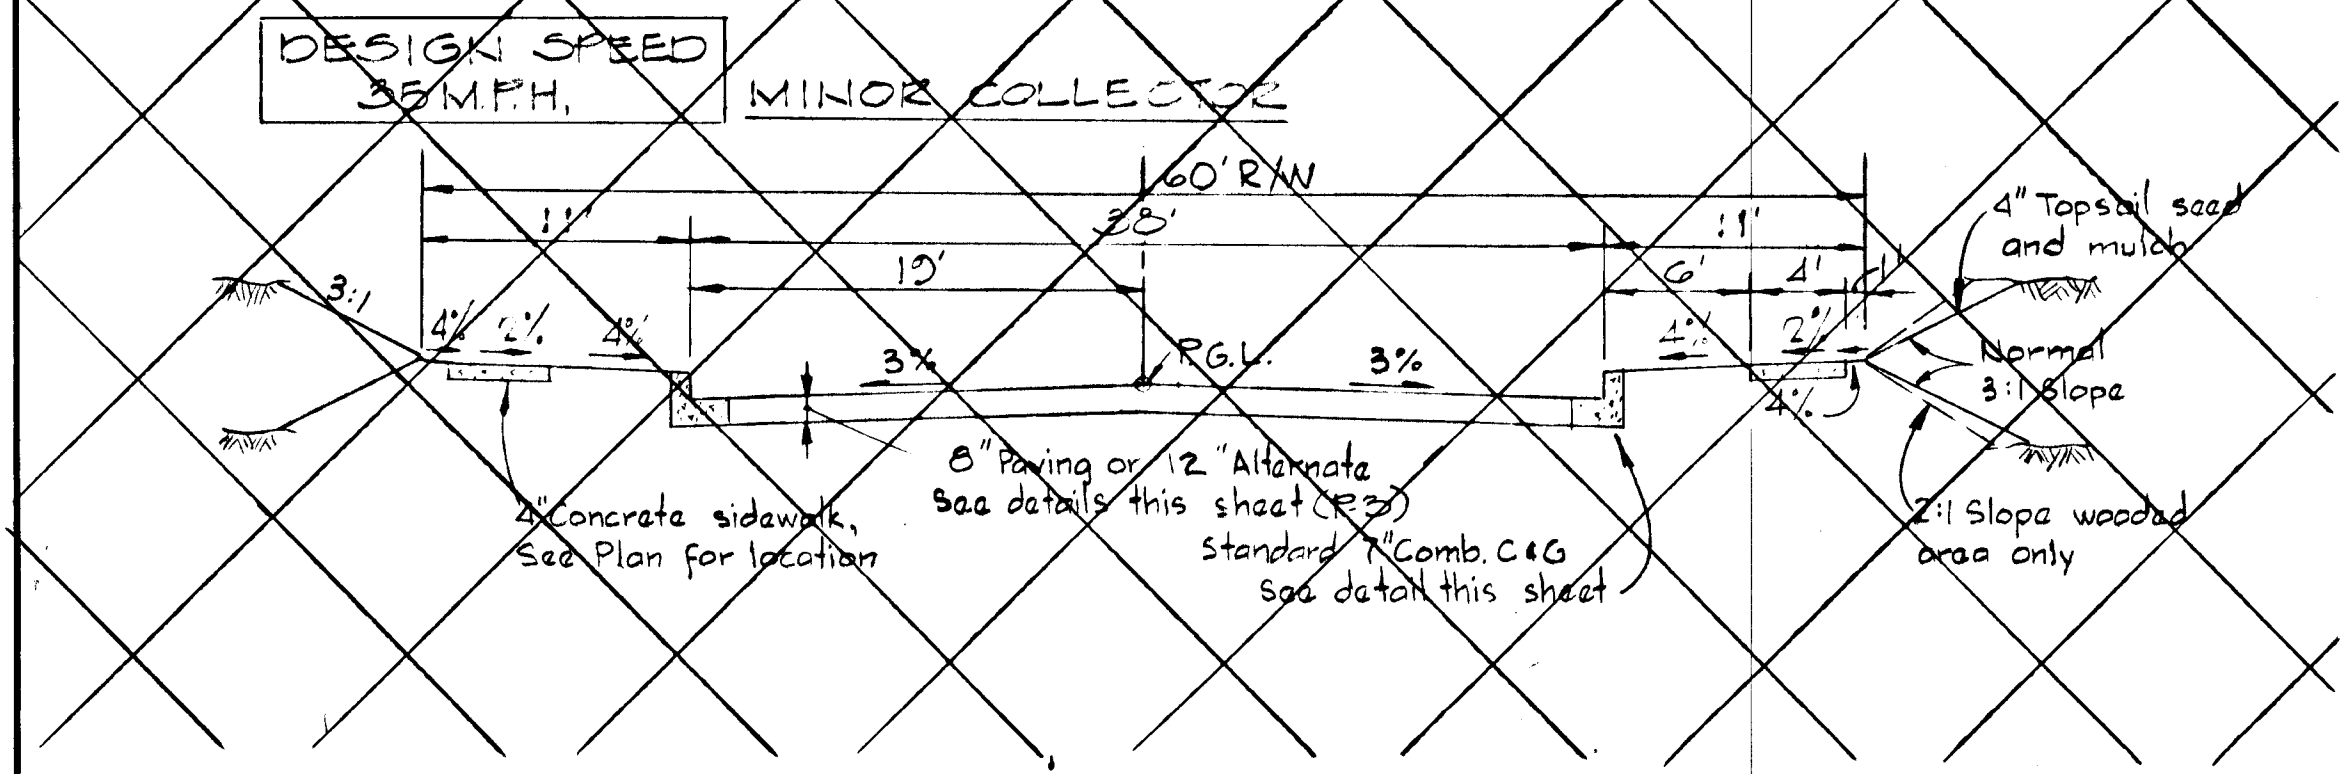 DESIGN SPEED
35 M.P.H.
MINOR COLLECTOR
60' R/W
11'
38'
11'
19'
6'
4'
1'
4" Topsoil seed
and mulch
3:1
4%
2%
4%
3%
P.G.L.
3%
4%
2%
4%
Normal
3:1 Slope
8" Paving or 12" Alternate
see details this sheet (P-3)
4" Concrete sidewalk,
See Plan for location
Standard 7" Comb. C&G
see detail this sheet
2:1 Slope wooded
area only